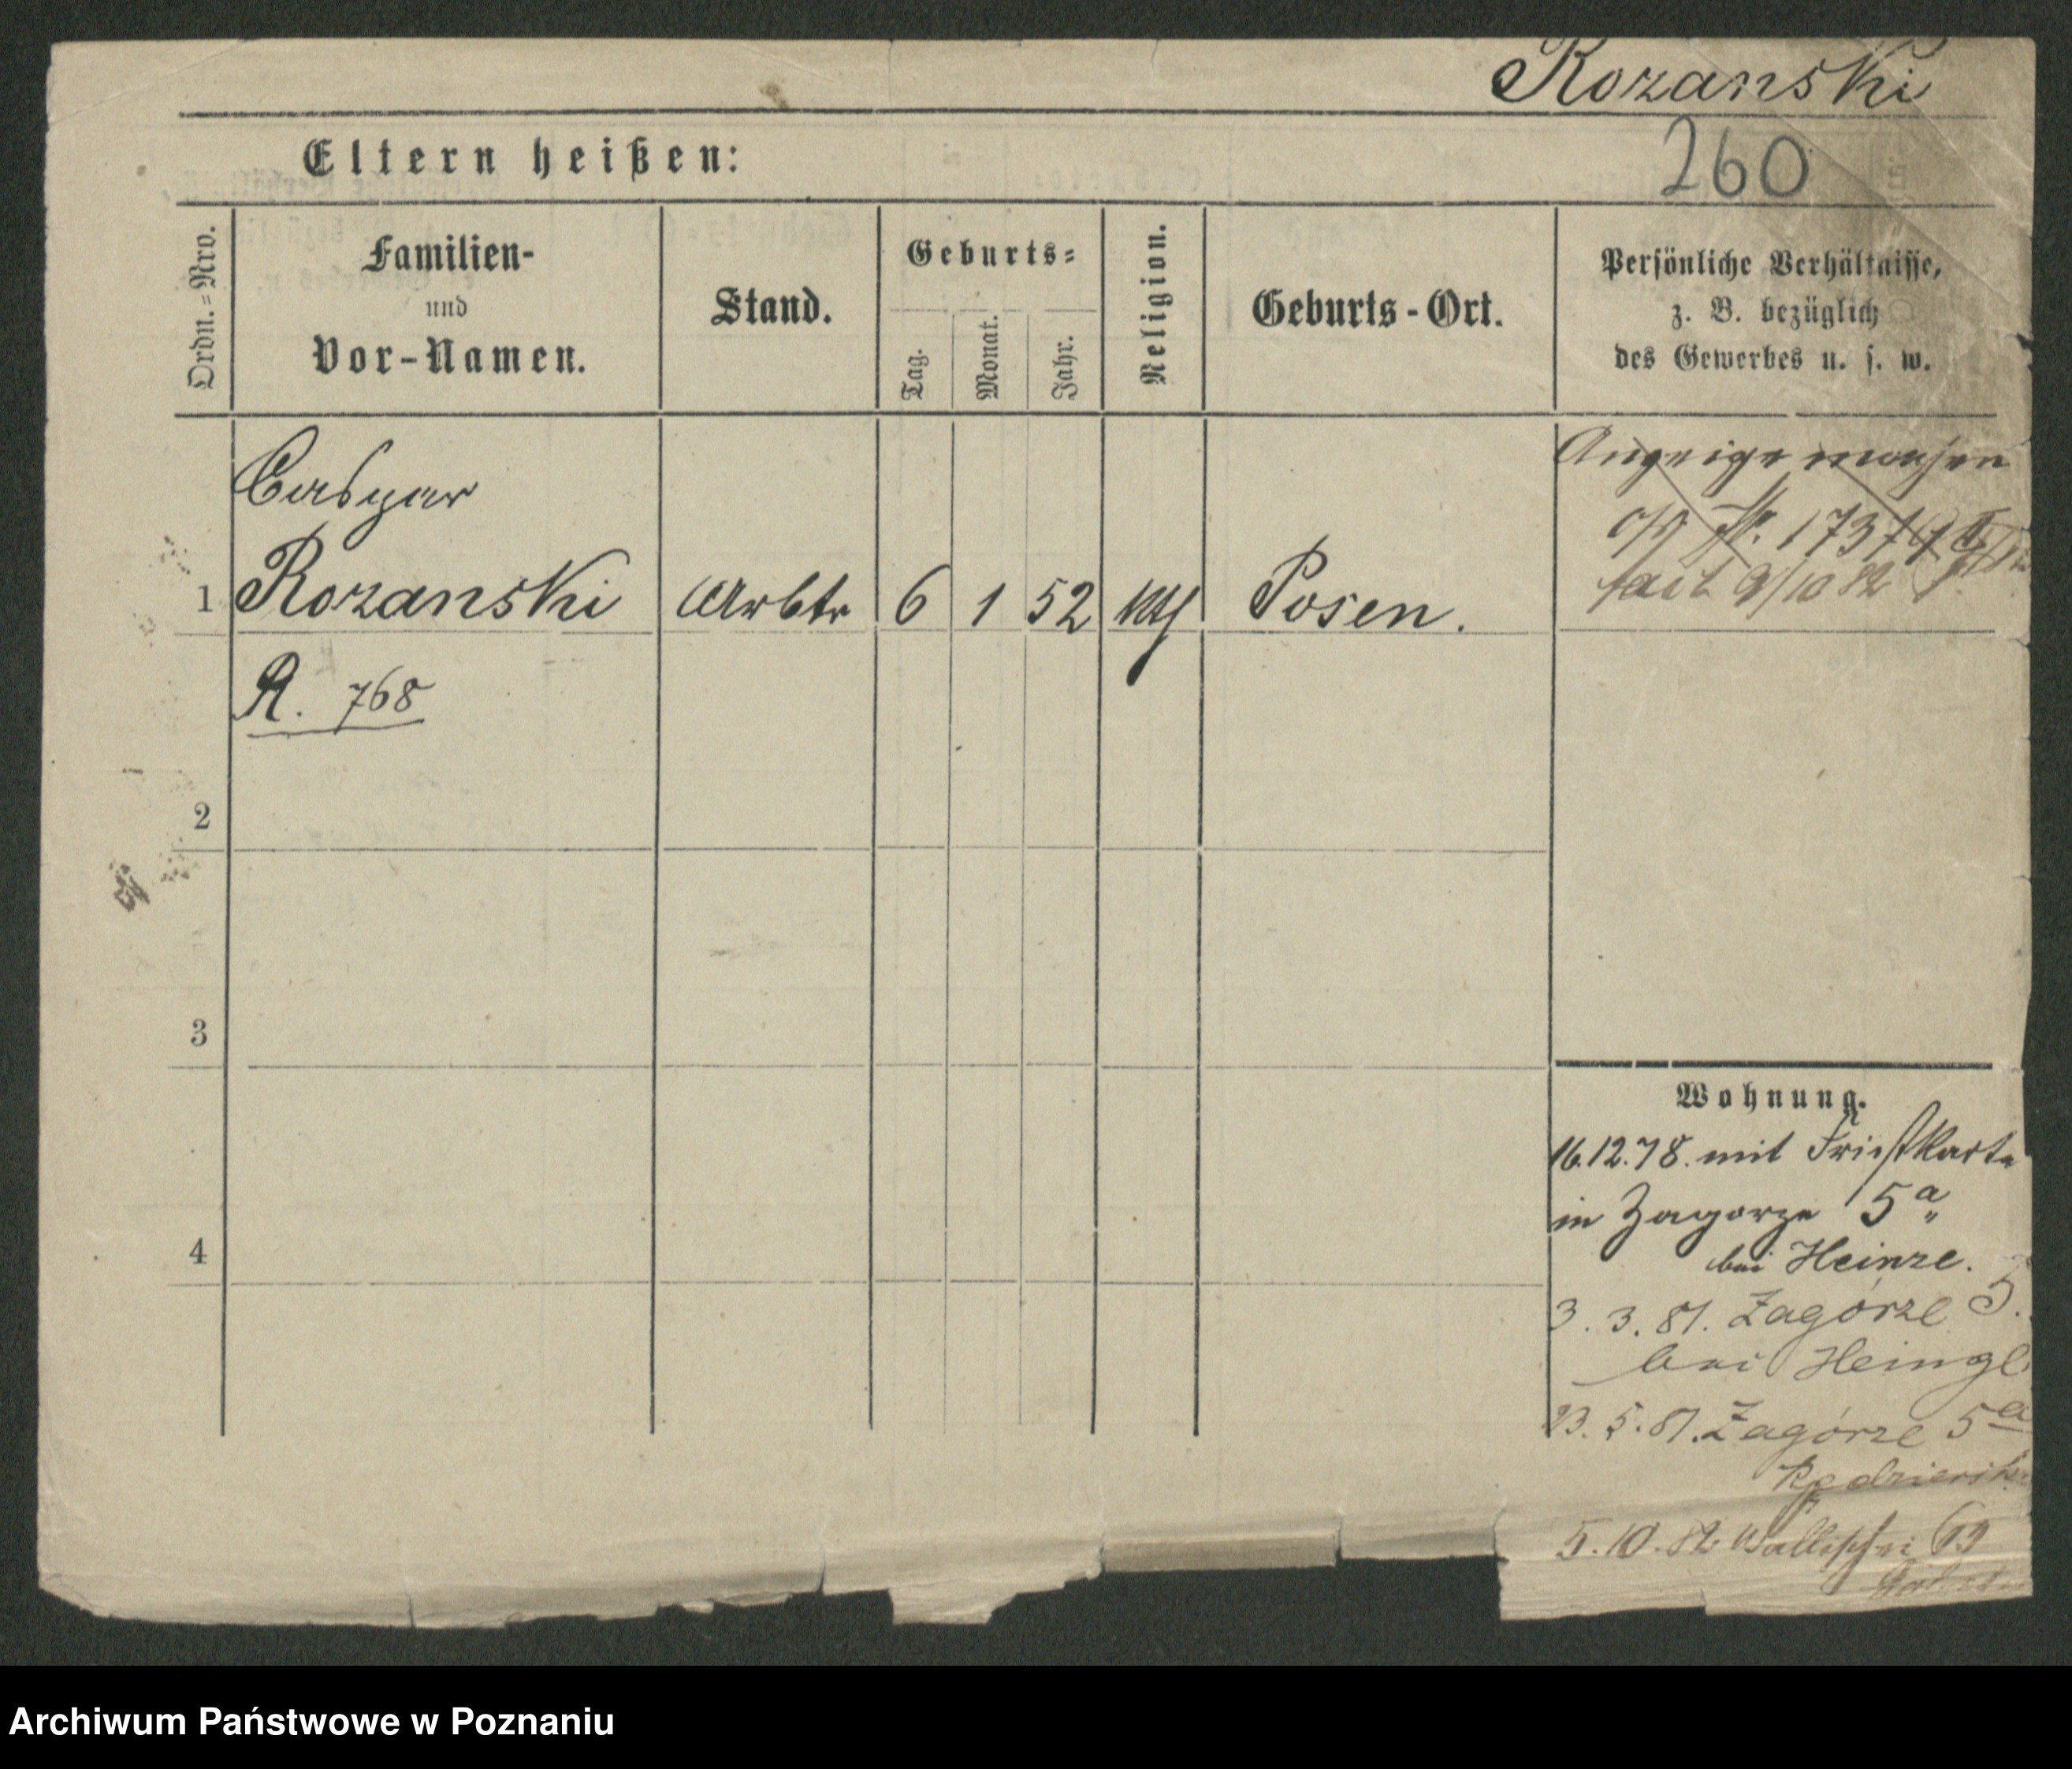 Rozanski
Eltern heißen:
260
Ordn.=Nro.
Familien-
und
Vor-Namen.
Stand.
Geburts=
Tag.
Monat.
Jahr.
Religion.
Geburts-Ort.
Persönliche Verhältnisse,
z. B. bezüglich
des Gewerbes u. s. w.
Caspar
1 Rozanski Arbtr 6 1 52 Posen.
Anzeige machen
R. 768
2
3
4
Wohnung.
16.12.78. mit Fristkarte
in Zagorze 5a
bei Heinze.
3. 3. 81. Zagórze 5.
bei Heinze
23. 5. 81. Zagórze 5a
5. 10. 82 Wallischei 69
Archiwum Państwowe w Poznaniu